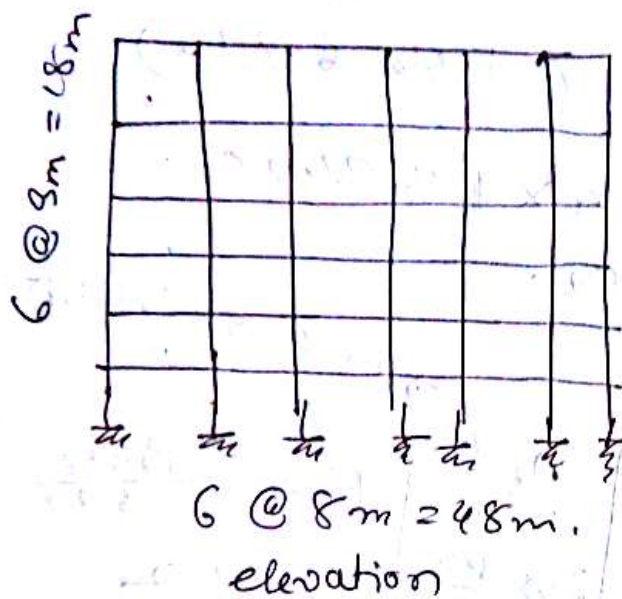 6 @ 3m = 18m
6 @ 8m = 48m.
elevation